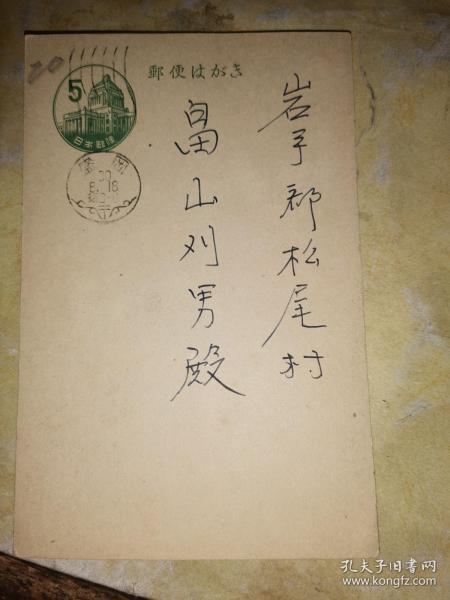 郵便はがき
20
5
日本郵便
岩手郡松尾村
畠山刈男殿
孔夫子旧书网
www.kongfz.com